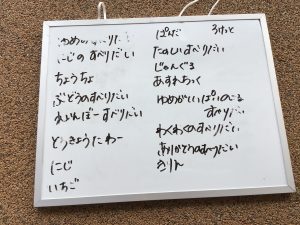 ゆめのすべりだい
にじのすべりだい
ちょうちょ
ぶどうのすべりだい
とうきょうたわー
にじ
いちご
ぱんだ ろけっと
たのしいすべりだい
じゃんぐる
あすれちっく
ゆめがいっぱいのこる
すべりだい
わくわくのすべりだい
ありがとうのすべりだい
きりん